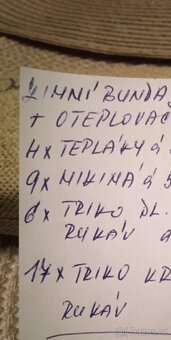 ZIMNÍ BUNDA
+ OTEPLOVAČ
4x TEPLÁKY á
9x MIKINA á 5
6x TRIKO DL.
RUKÁV á
17x TRIKO KR
RUKÁV